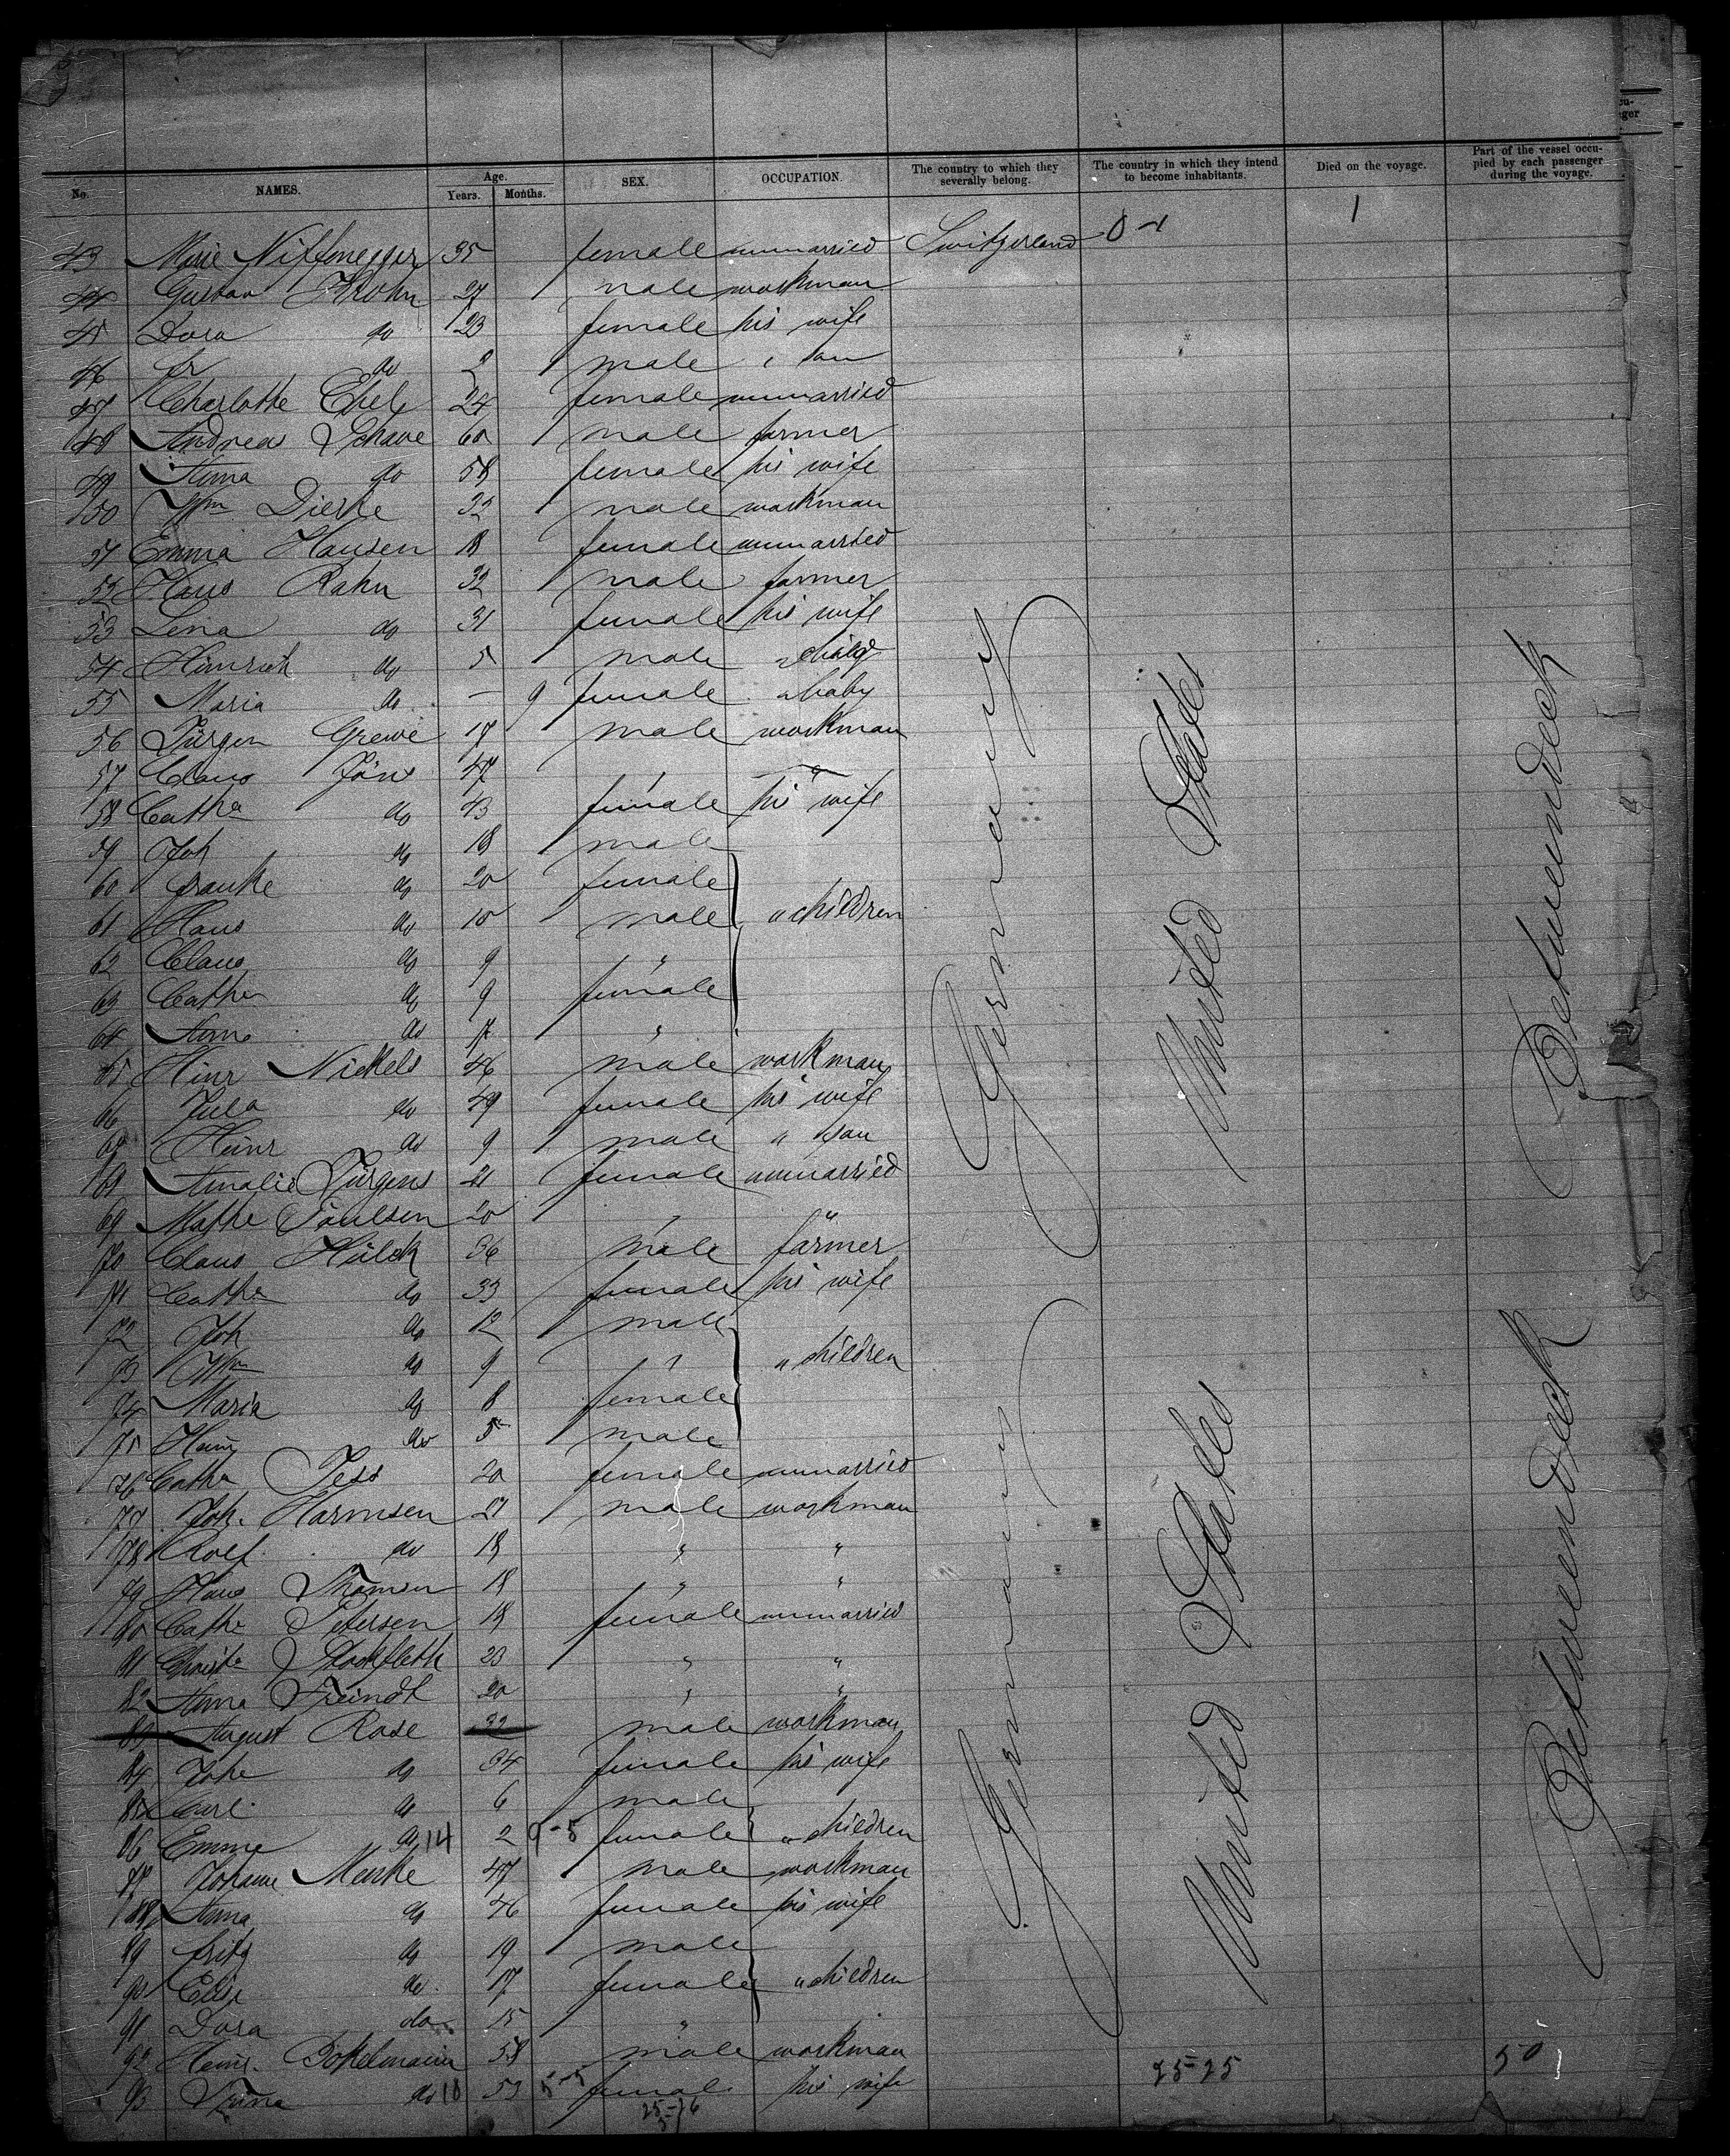 No. NAMES. Age. Years. Months. SEX. OCCUPATION. The country to which they severally belong. The country in which they intend to become inhabitants. Died on the voyage. Part of the vessel occupied by each passenger during the voyage.
43 Marie Niffenegger 35 female unmarried Switzerland
44 Gustav Krohn 27 male workman
45 Dora do 23 female his wife
46 Fr do 2 male " son
47 Charlotte Ebel 24 female unmarried
48 Andreas Schave 60 male farmer
49 Anna do 58 female his wife
50 Wm Dierke 32 male workman
51 Emma Hansen 18 female unmarried
52 Hans Rahn 32 male farmer
53 Lena do 31 female his wife
54 Hinrich do 5 male " child
55 Maria do — 9 female " baby
56 Jürgen Grewe 17 male workman
57 Claus Jöns 47 " "
58 Cathe do 43 female his wife
59 Joh do 18 male
60 Frauke do 20 female
61 Hans do 10 male " children
62 Claus do 9 "
63 Cathe do 9 female
64 Anna do 7 "
65 Hinr Nickels 46 male workman
66 Jula do 49 female his wife
67 Heinr do 9 male " son
68 Amalie Jürgens 21 female unmarried
69 Mathe Paulsen 20 " "
70 Claus Hülck 36 male farmer
71 Cathe do 33 female his wife
72 Joh do 12 male
73 Wm do 9 " " children
74 Maria do 8 female
75 Heinr do 5 male
76 Cathe Jess 20 female unmarried
77 Joh. Harmsen 27 male workman
78 Rolf do 18 " "
79 Hans Thomsen 18 " "
80 Cathe Petersen 18 female unmarried
81 Christe Stockfleth 23 " "
82 Anna Freindt 20 " "
83 August Rose 32 male workman
84 Johe do 34 female his wife
85 Carl do 6 male
86 Emma do 14 2 9-5 female " children
87 Johann Menke 47 male workman
88 Anna do 46 female his wife
89 Fritz do 19 male
90 Elise do 17 female " children
91 Dora do 15 "
92 Heinr. Bokelmann 58 male workman
93 Trina do 10 53 5-5 female his wife
Germany United States Betweendeck
Germany United States Betweendeck
25-25 50